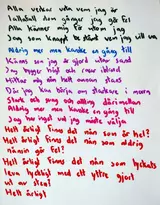 Alla verkar veta vem jag är
Iallafall dom gånger jag gör fel
Alla känner mig för vem jag
Jag som knappt bestämt vem jag vill va
Aldrig mer men kanske en gång till
Känns som jag är gjord utav sand
Jag bygger högt och rasar ibland
Hittar mig din helt annan stans
Där jag kan börja om starkare i morn
Stark och svag och allting däremellan
Aldrig mer men kanske en gång till
Jag har inget val jag måste välja
Helt ärligt finns det nån som är hel?
Helt ärligt finns det nån som aldrig
nånsin gör fel?
Helt ärligt finns det nån som lyckats
leva lyckligt med ett yttre gjort
ut av sten?
Helt ärligt